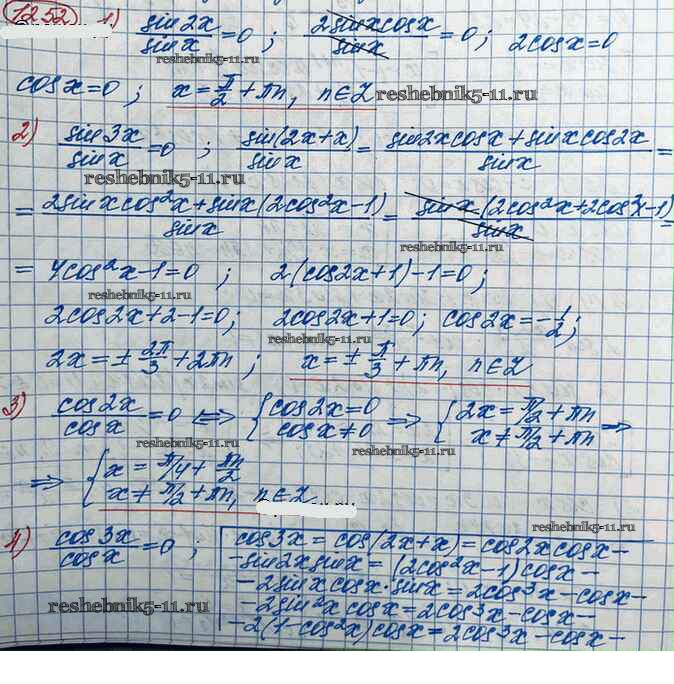 1252 1) sin2x/sinx = 0 ; 2sinxcosx/sinx = 0 ; 2cosx=0
reshebnik5-11.ru
cosx=0 ; x = π/2 + πn, n∈Z reshebnik5-11.ru
2) sin3x/sinx = 0 ; sin(2x+x)/sinx = sin2xcosx+sinxcos2x/sinx =
reshebnik5-11.ru
= 2sinxcos²x+sinx(2cos²x-1)/sinx = sinx(2cos²x+2cos²x-1)/sinx =
reshebnik5-11.ru reshebnik5-11.ru
= 4cos²x-1=0 ; 2(cos2x+1)-1=0 ;
reshebnik5-11.ru
2cos2x+2-1=0; 2cos2x+1=0; cos2x=-1/2;
reshebnik5-11.ru
2x=± 2π/3 +2πn ; x=± π/3 +πn, n∈Z
3) cos2x/cosx = 0 ⇔ {cos2x=0 cosx≠0 ⇒ {2x=π/2+πn x≠π/2+πn ⇒
reshebnik5-11.ru reshebnik5-11.ru
⇒ {x=π/4+πn/2 x≠π/2+πn, n∈Z
4) cos3x/cosx = 0 ; cos3x = cos(2x+x) = cos2xcosx-
-sin2xsinx = (2cos²x-1)cosx-
-2sinxcosx·sinx = 2cos³x-cosx-
reshebnik5-11.ru
-2sin²xcosx = 2cos³x-cosx-
-2(1-cos²x)cosx = 2cos³x-cosx-
reshebnik5-11.ru